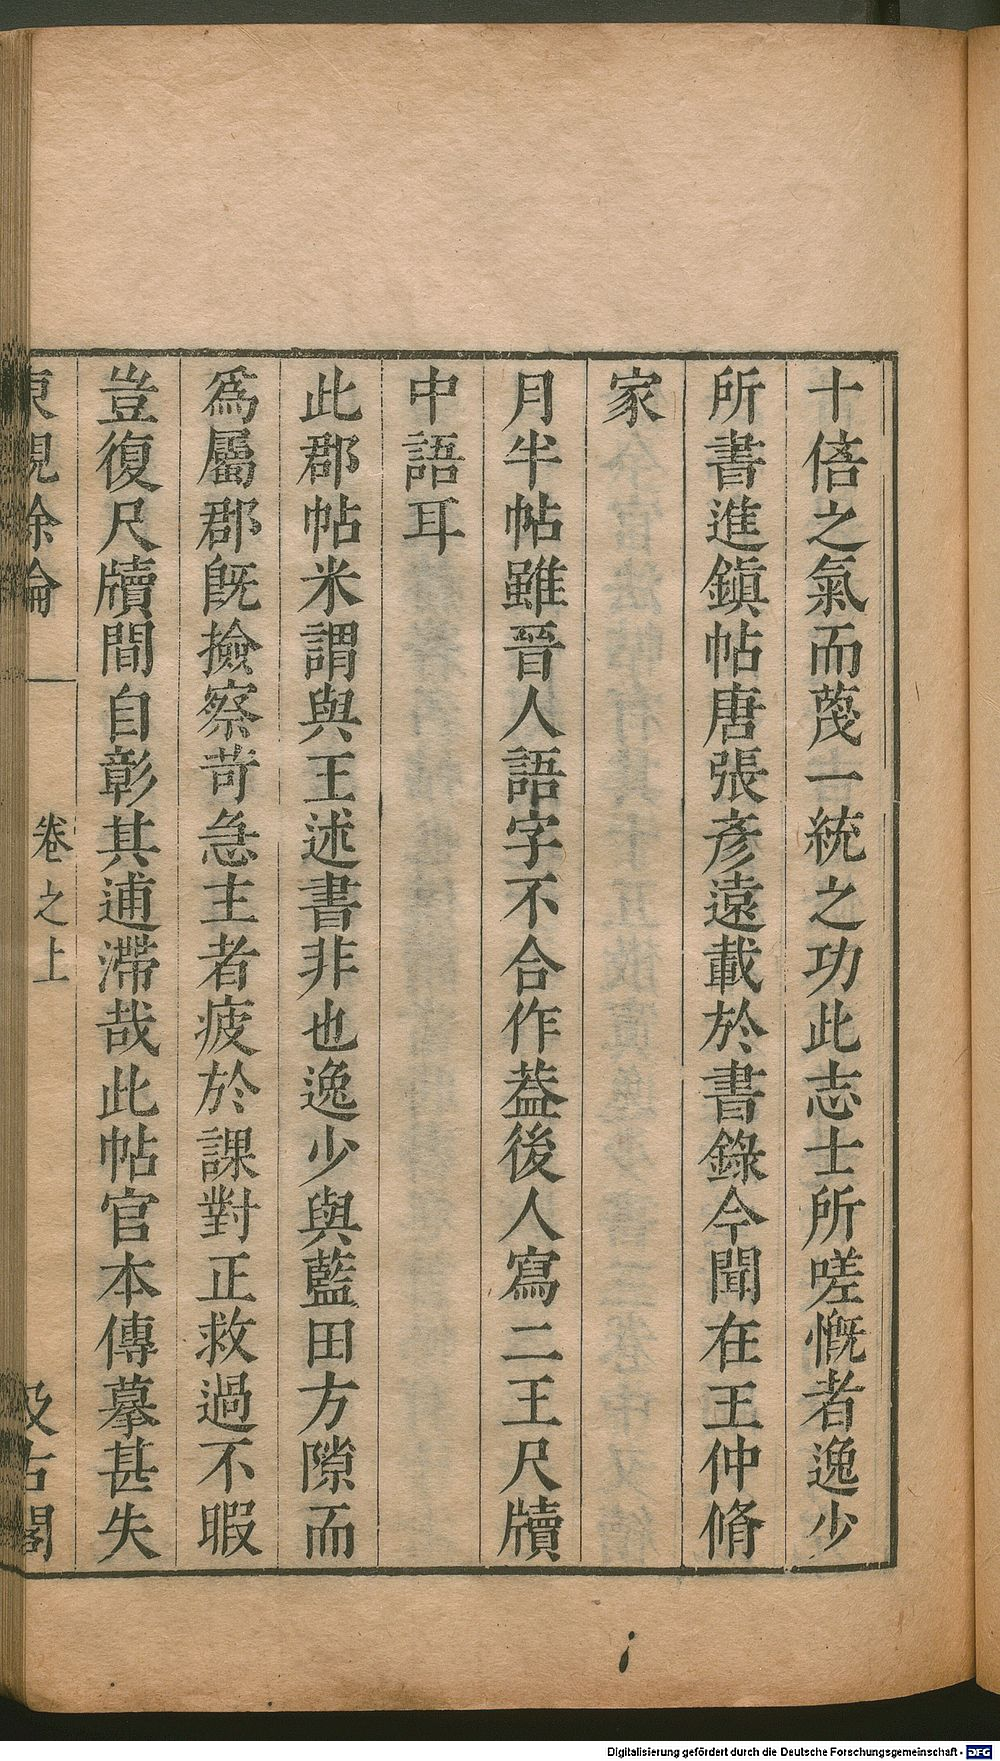 十倍之氣而蔑一統之功此志士所嗟慨者逸少
所書進鎮帖唐張彥遠載於書錄今聞在王仲脩
家
月半帖雖晉人語字不合作葢後人寫二王尺牘
中語耳
此郡帖米謂與王述書非也逸少與藍田方隙而
爲屬郡旣撿察苛急主者疲於課對正救過不暇
豈復尺牘間自彰其逋滯哉此帖官本傳摹甚失
東觀餘論 卷之上 汲古閣
Digitalisierung gefördert durch die Deutsche Forschungsgemeinschaft - DFG